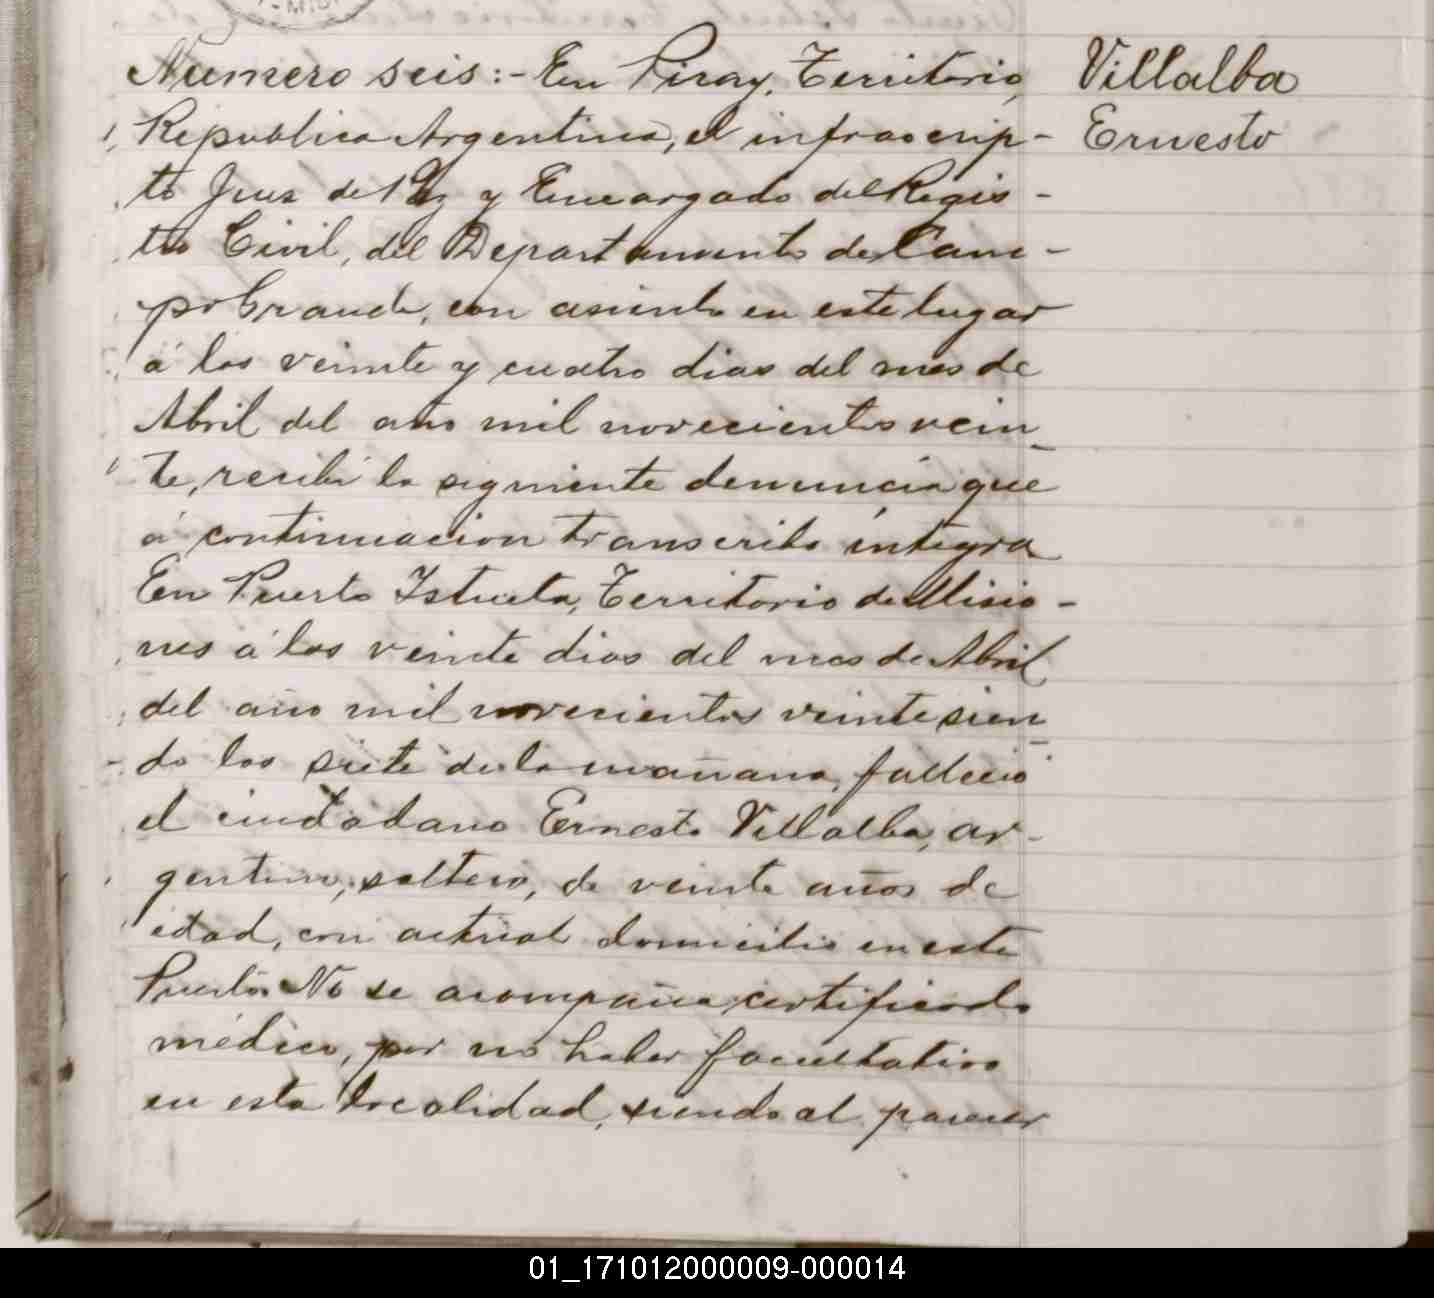 Numero seis:- En Piray, Territorio,
República Argentina, el infrascrip-
to Juez de Paz y Encargado del Regis-
tro Civil, del Departamento de Cam-
po Grande, con asiento en este lugar
á los veinte y cuatro dias del mes de
Abril del año mil novecientos vein-
te, recibí la siguiente denuncia que
á continuacion transcribo íntegra
En Puerto Istueta, Territorio de Misio-
nes á los veinte dias del mes de Abril
del año mil novecientos veinte sien-
do las siete de la mañana, falleció
el ciudadano Ernesto Villalba, ar-
gentino, soltero, de veinte años de
edad, con actual domicilio en este
Puerto. No se acompaña certificado
médico, por no haber facultativo
en esta localidad, siendo al parecer
Villalba
Ernesto
01_171012000009-000014